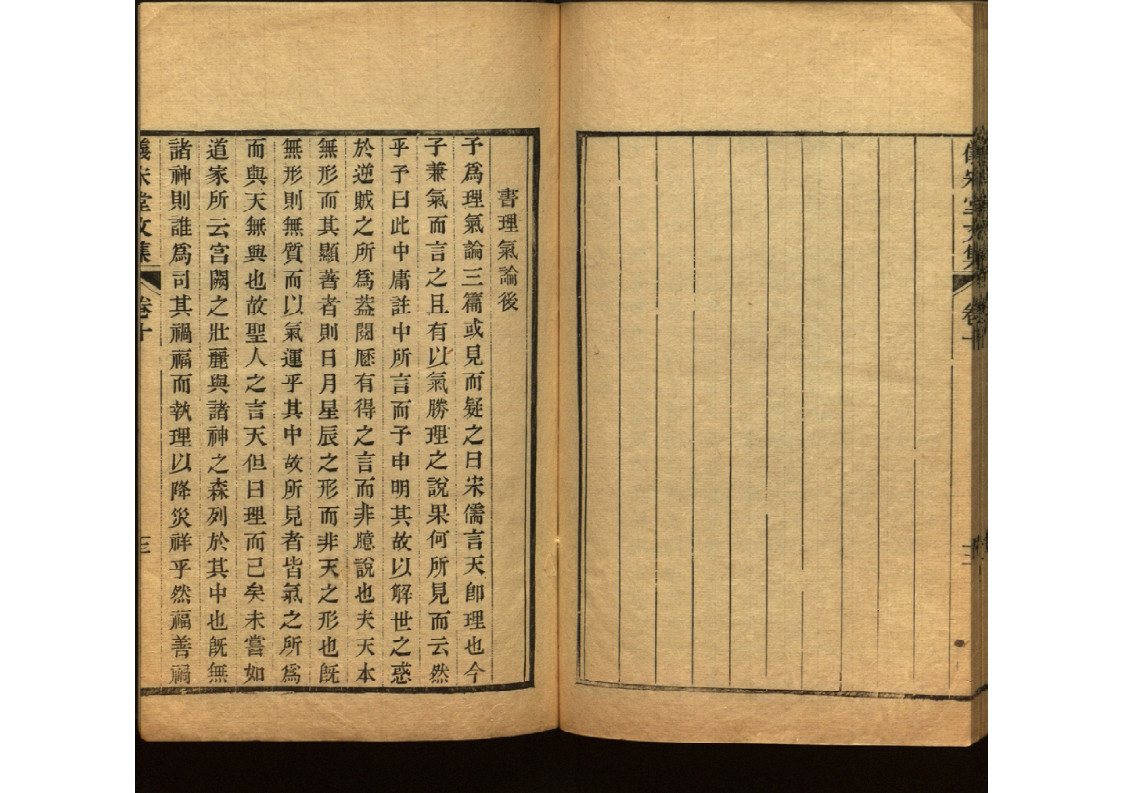 儀宋堂文集
卷十
三
書理氣論後
予爲理氣論三篇或見而疑之曰宋儒言天卽理也今
子兼氣而言之且有以氣勝理之說果何所見而云然
乎予曰此中庸註中所言而予申明其故以解世之惑
於逆賊之所爲蓋閱歷有得之言而非臆說也夫天本
無形而其顯著者則日月星辰之形而非天之形也旣
無形則無質而以氣運乎其中故所見者皆氣之所爲
而與天無與也故聖人之言天但曰理而已矣未嘗如
道家所云宮闕之壯麗與諸神之森列於其中也旣無
諸神則誰爲司其禍福而執理以降災祥乎然福善禍
儀宋堂文集
卷十
三